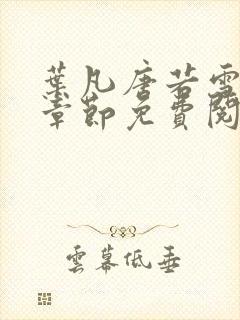 葉凡唐若雪
章節免費閱
雲幕低垂